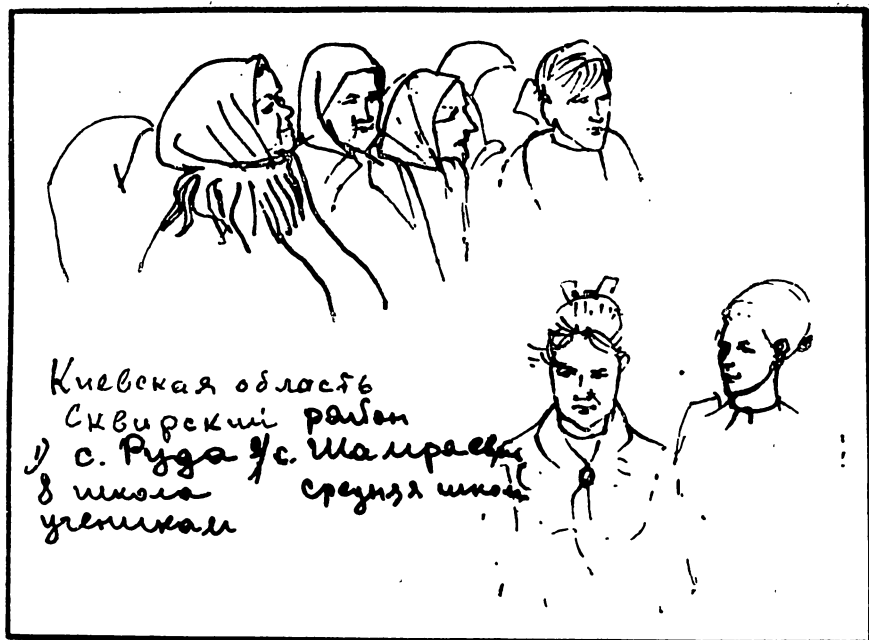 Киевская область
Сквирский район
1) с. Руда 2) с. Шамраевка
8 школа средняя школа
ученикам